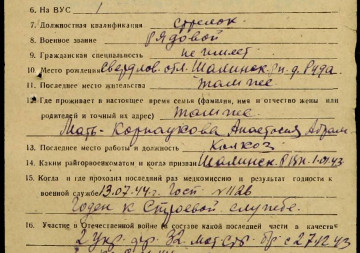 6. На ВУС 1
7. Должностная квалификация стрелок
8. Военное звание Рядовой
9. Гражданская специальность не имеет
10. Место рождения Свердлов. обл. Шалинск. рн. д. Руда
11. Последнее место жительства Там же
12. Где проживает в настоящее время семья (фамилия, имя и отчество жены или
родителей и точный их адрес) Там же
Мать - Корнаукова Анастасия Абрам
13. Последнее место работы и должность Колхоз
14. Каким райгорвоенкоматом и когда призван Шалинск. РВК 1-01-43
15. Когда и где проходил раз медкомиссию и результат годности к
военной службе 13.07.44 г. Госп №1126
Годен к строевой службе.
16. Участие в Отечественной войне (в составе какой последней части в качестве
2 Укр. фр. 32 Мот. Стр. бр с 2